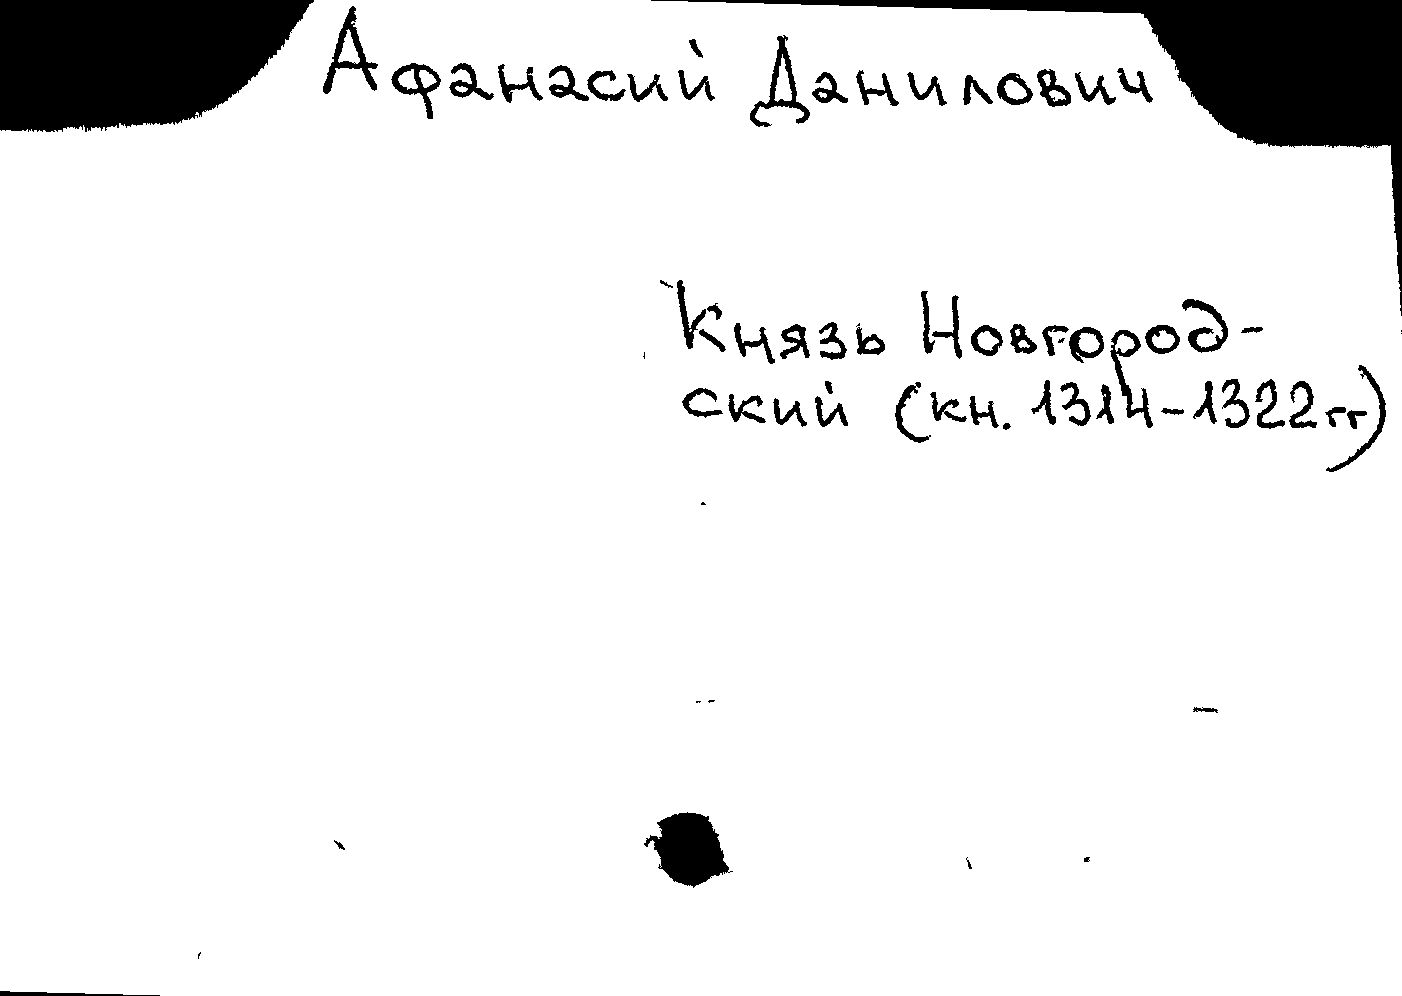 Афанасий Данилович
Князь Новгород-
ский (кн. 1314-1322гг)